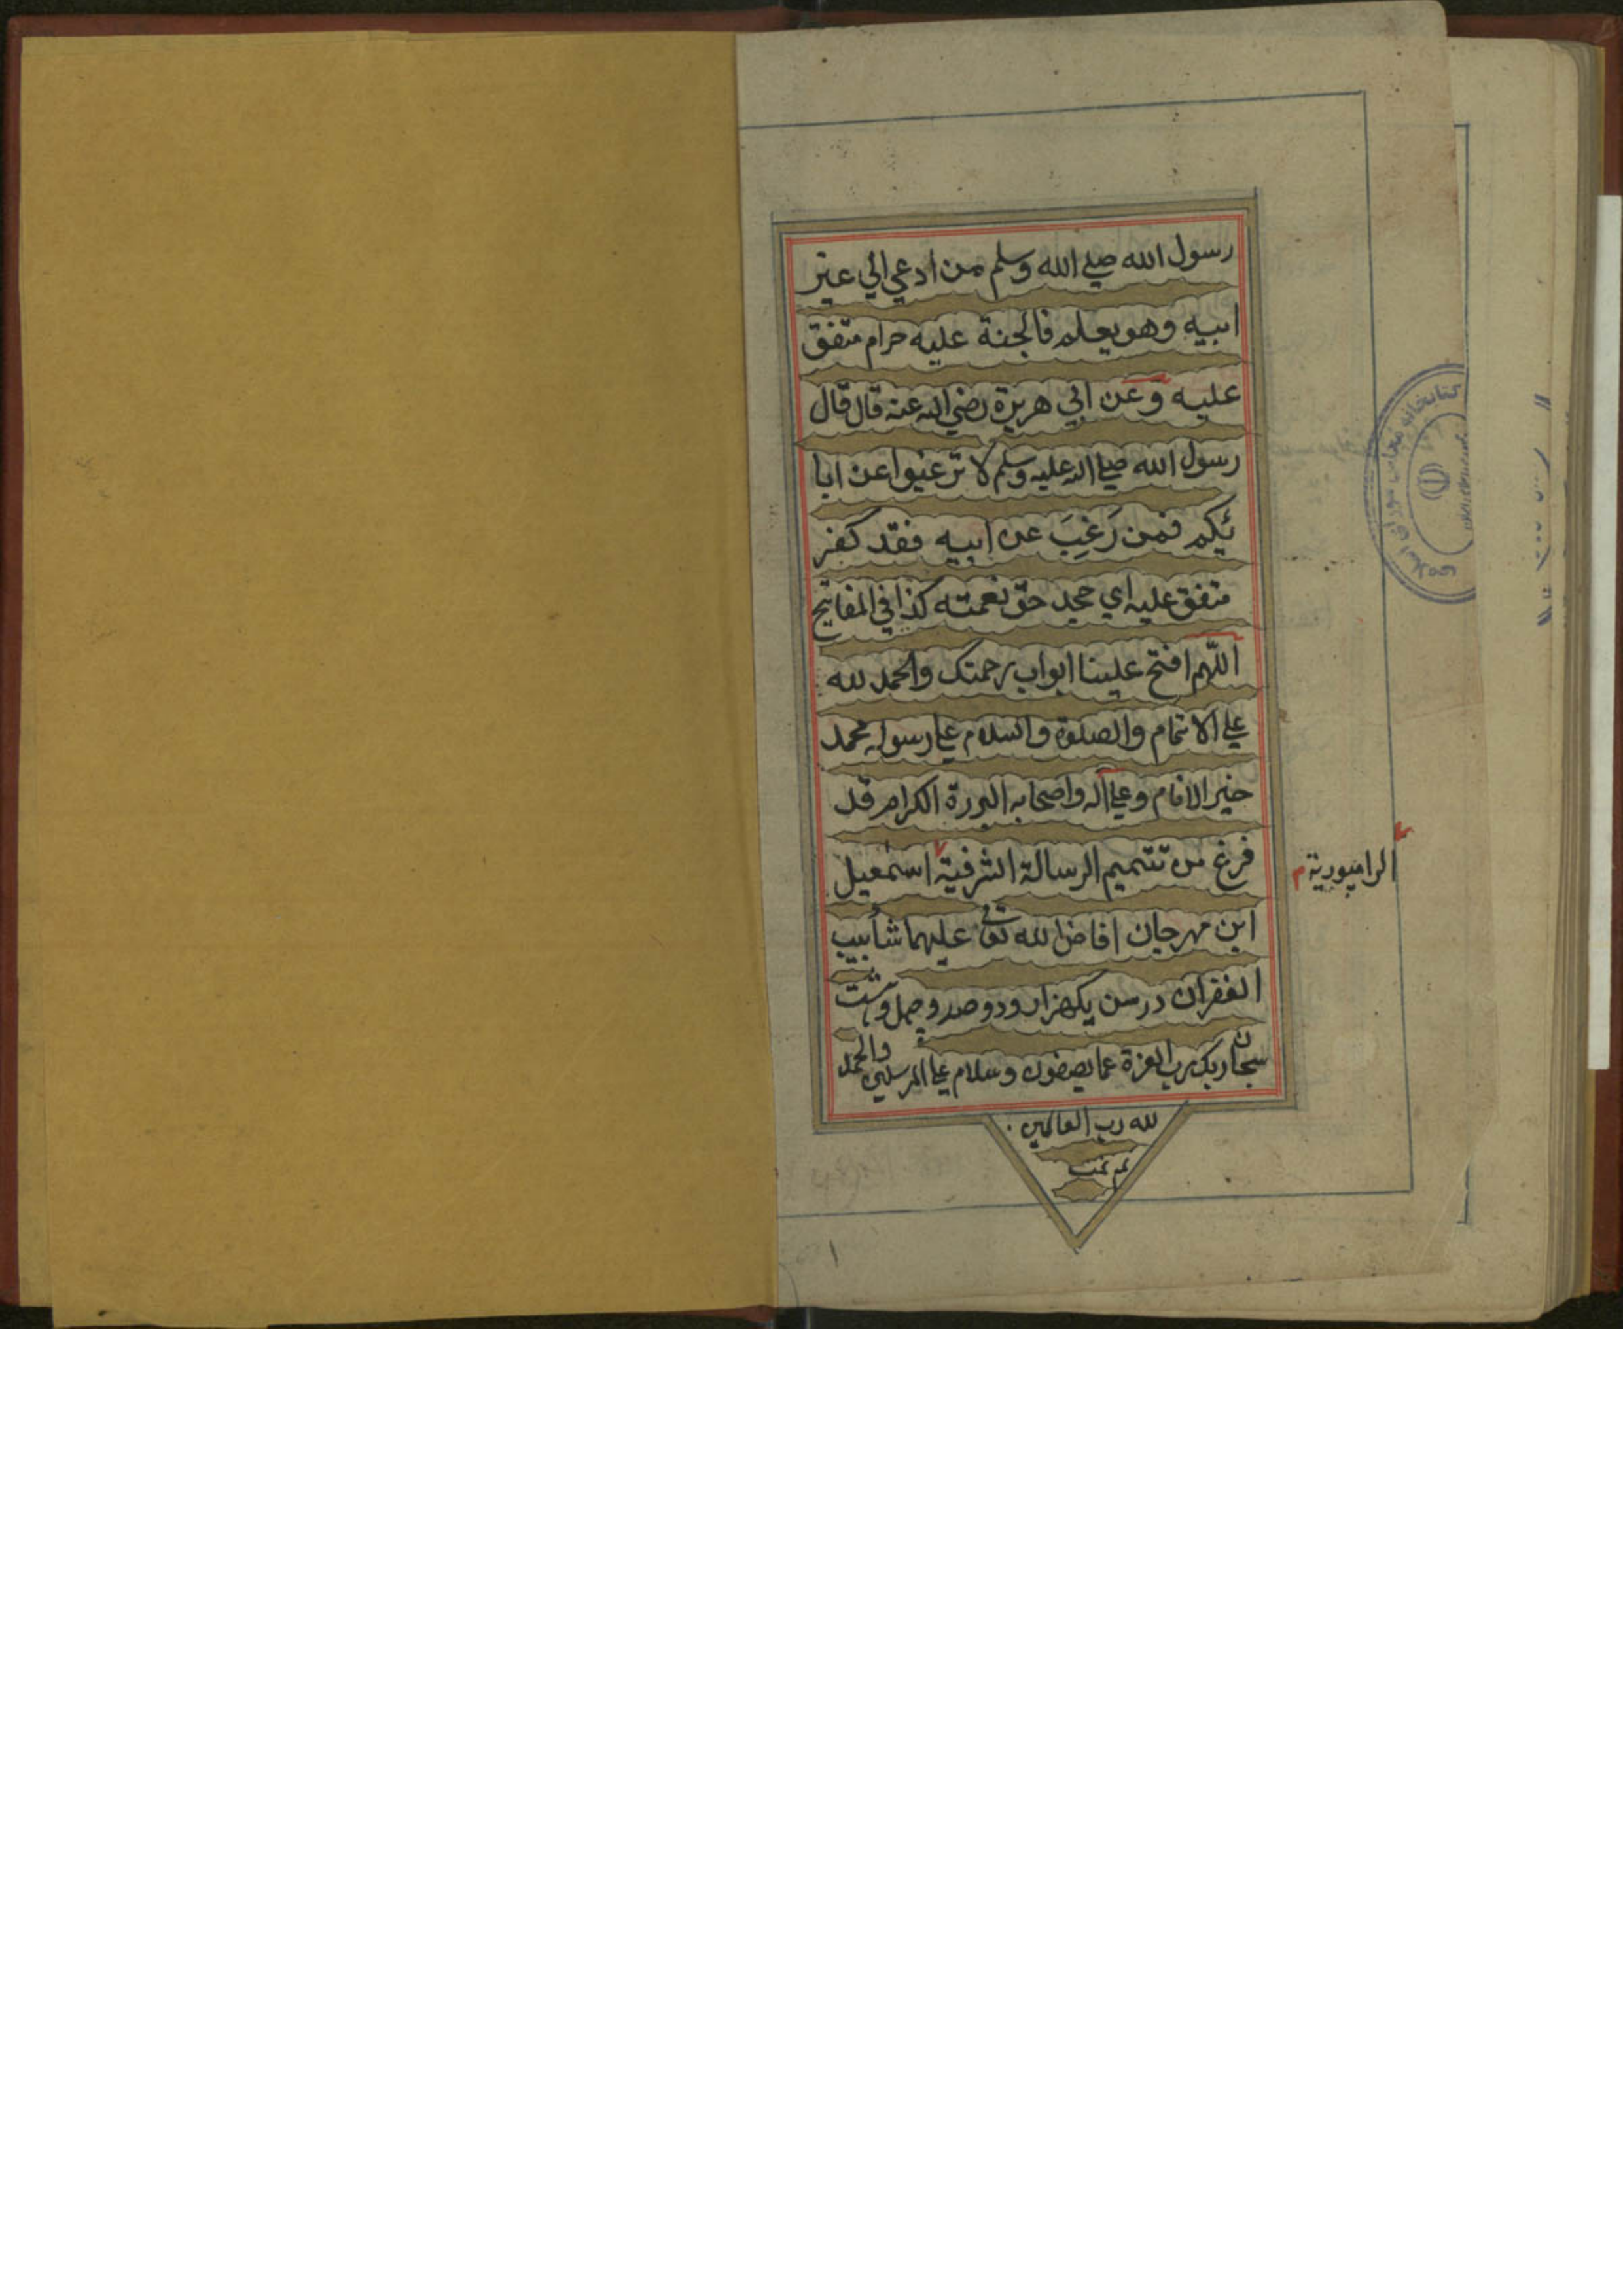 رسول الله صلي الله وسلم من ادعي الي غير
ابيه وهو يعلم فالجنة عليه حرام متفق
عليه وعن ابي هريرة رضي الله عنه قال قال
رسول الله صلي الله عليه وسلم لا ترغبوا عن ابا
ئكم فمن رَغِبَ عن ابيه فقد كفر
متفق عليه اي جحد حق نعمته كذا في المفاتيح
اللّهم افتح علينا ابواب رحمتك والحمد لله
علي الاتمام والصلوة والسلام علي رسوله محمد
خير الانام وعلي آله واصحابه البررة الكرام قد
فرغ من تتميم الرسالة الشرفية اسمعيل
الرامپورية
ابن مهرجان افاض الله تعالى عليهما شأبيب
الغفران در سن يكهزار ودو صد وچهل وهشت
سبحان ربك رب العزة عما يصفون وسلام علي المرسلين والحمد
لله رب العالمين
تم تمت
كتابخانه مجلس شوراى اسلامى
١